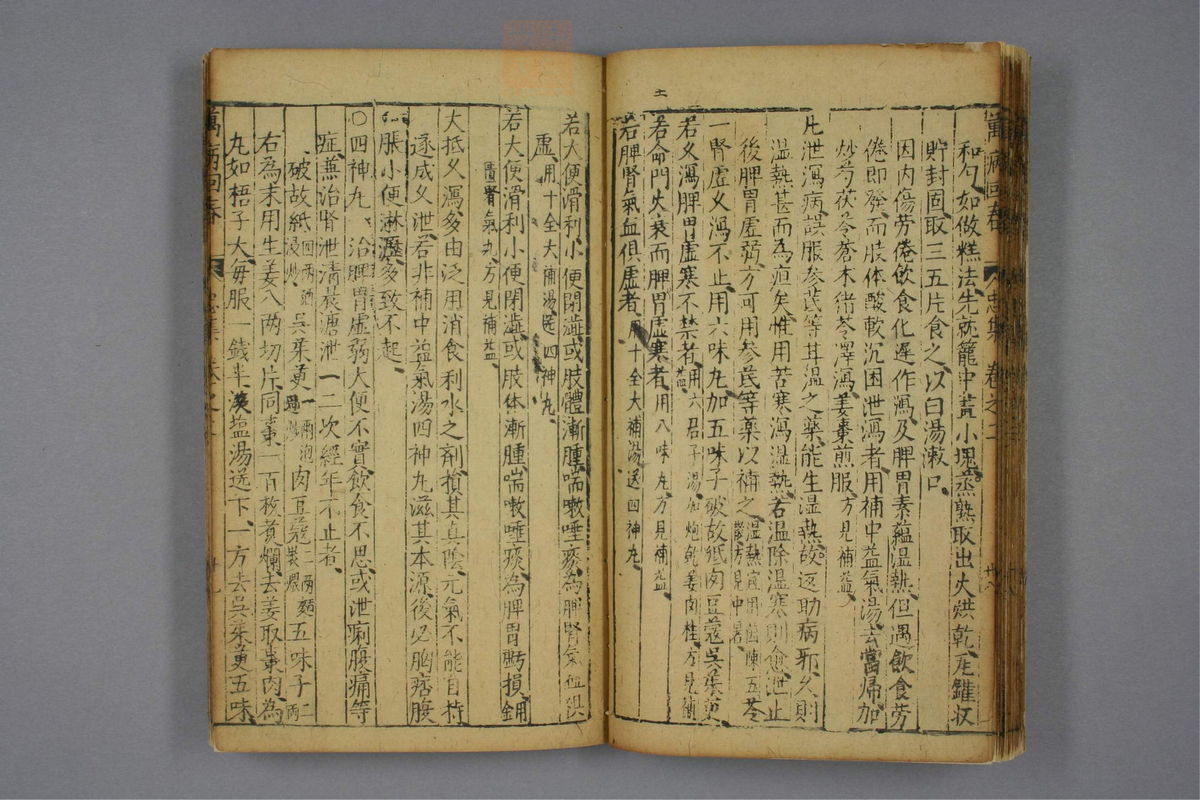 萬病回春 忠集 卷之二
和勻如做糕法先就籠中畫小塊蒸熟取出火烘乾瓦鑵収
貯封固取三五片食之以白湯漱口
因内傷勞倦飲食化遲作瀉及脾胃素蘊温熱但遇飲食勞
倦即發而肢体酸軟沉困泄瀉者用補中益氣湯去當帰加
炒芍茯苓蒼朮猪苓澤瀉姜棗煎服方見補益
凡泄瀉病誤服参芪等甘温之藥能生湿熱故反助病邪久則
温熱甚而為疸矣惟用苦寒瀉温熱若温除湿寒則愈泄止
後脾胃虛弱方可用参芪等藥以補之温熱宜用茵陳五苓散方見中暑
一腎虛久瀉不止用六味丸加五味子破故紙肉豆蔻吳茱萸
若久瀉脾胃虛寒不禁者用六君子湯加炮乾姜肉桂方見補益
若命門火衰而脾胃虛寒者用八味丸方見補益
若脾腎氣血俱虛者用十全大補湯送四神丸
若大便滑利小便閉澁或肢體漸腫喘嗽唾痰為脾腎氣血俱
虛用十全大補湯送四神丸
若大便滑利小便閉澁或肢体漸腫喘嗽唾痰為脾胃虧損用
腎氣丸方見補益
大抵久瀉多由泛用消食利水之剤損其真陰元氣不能自持
遂成久泄若非補中益氣湯四神丸滋其本源後必胸痞腹
脹小便淋瀝多致不起
○四神丸 治脾胃虛弱大便不實飲食不思或泄痢腹痛等
症兼治腎泄清晨溏泄一二次經年不止者
破故紙四兩酒浸炒 吳茱萸一兩泡過炒 肉豆蔻二兩麵裹煨 五味子二兩
右為末用生姜八两切片同棗一百枚煮爛去姜取棗肉為
丸如梧子大每服一錢半淡塩湯送下一方去吳茱萸五味
萬病回春